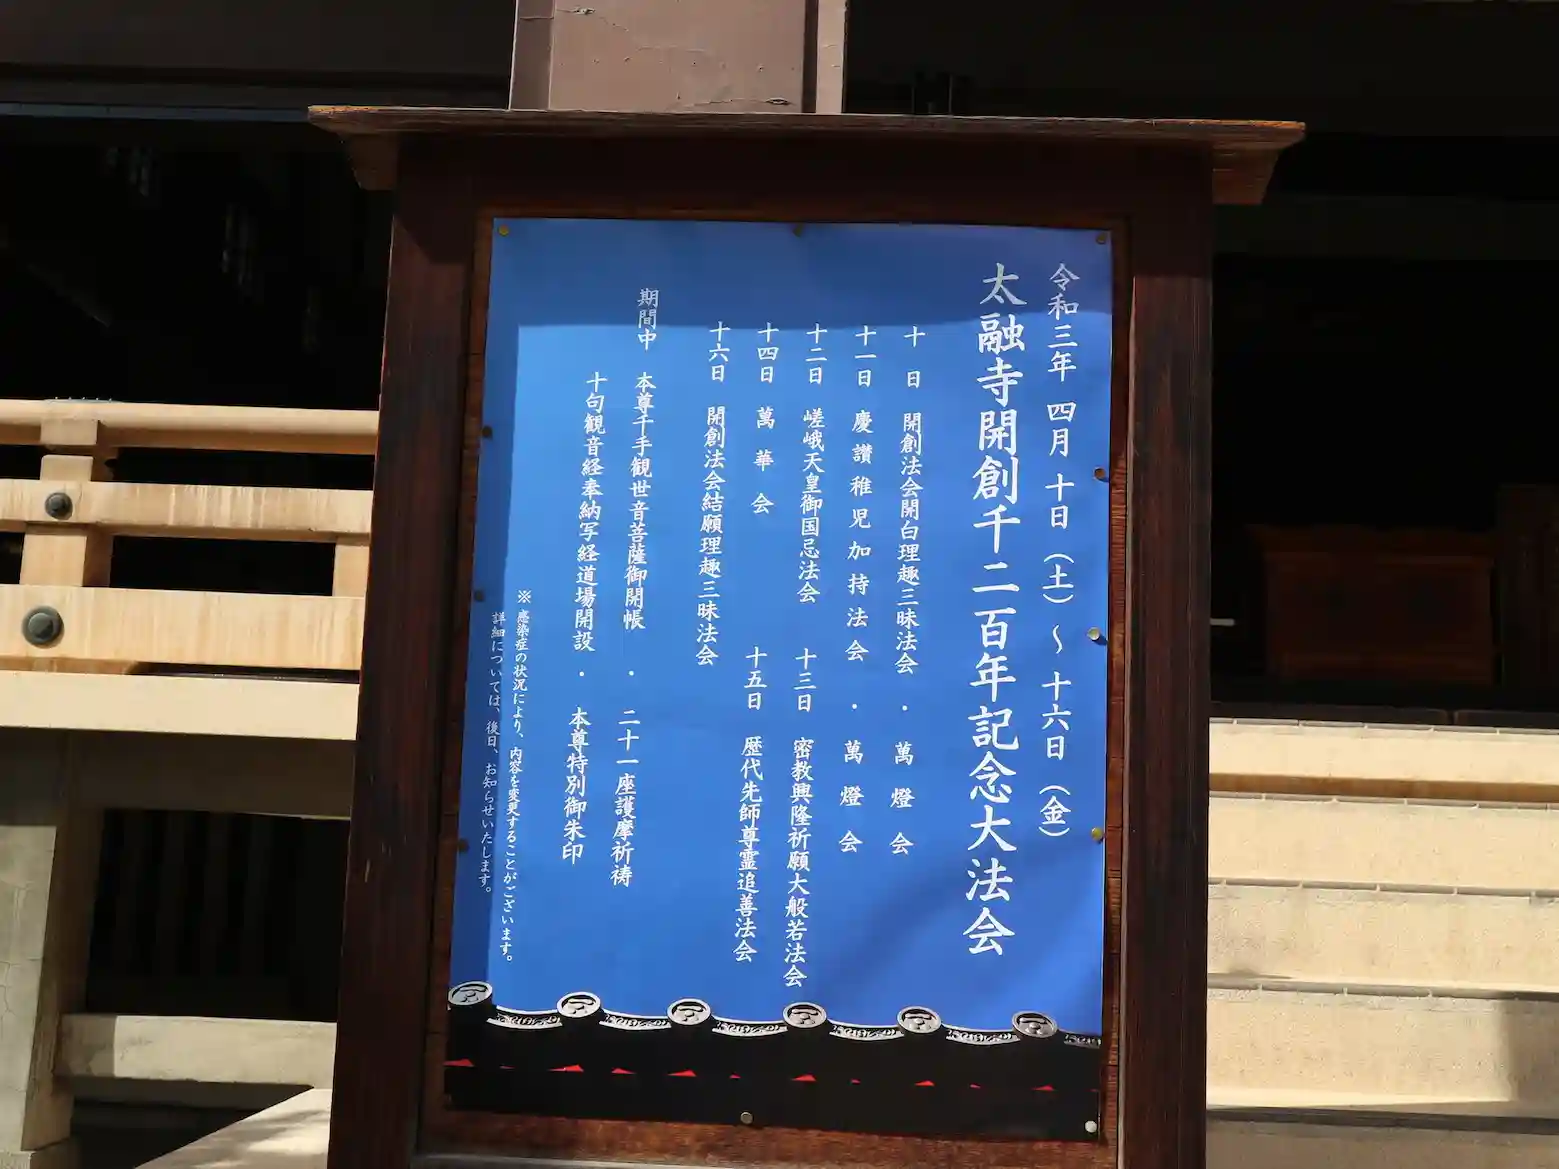 令和三年 四月 十日（土）～ 十六日（金）
太融寺開創千二百年記念大法会
十 日 開創法会開白理趣三昧法会 ・ 萬燈会
十一日 慶讃稚児加持法会 ・ 萬燈会
十二日 嵯峨天皇御国忌法会
十三日 密教興隆祈願大般若法会
十四日 萬華会
十五日 歴代先師尊霊追善法会
十六日 開創法会結願理趣三昧法会
期間中 本尊千手観世音菩薩御開帳 ・ 二十一座護摩祈祷
十句観音経奉納写経道場開設 ・ 本尊特別御朱印
※ 感染症の状況により、内容を変更することがございます。
詳細については、後日、お知らせいたします。